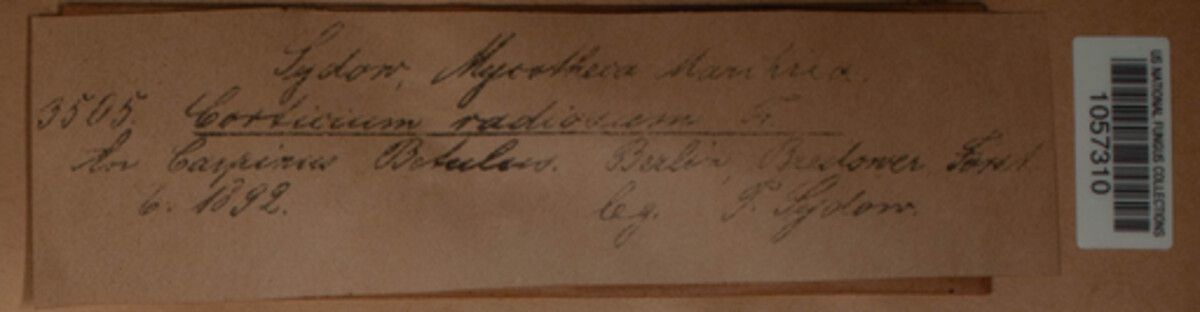 Sydow, Mycotheca Marchica.
3505. Corticium radiosum Fr.
An Carpinus Betulus. Berlin, Bredower Forst.
6. 1892. leg. P. Sydow.
US NATIONAL FUNGUS COLLECTIONS
1057310